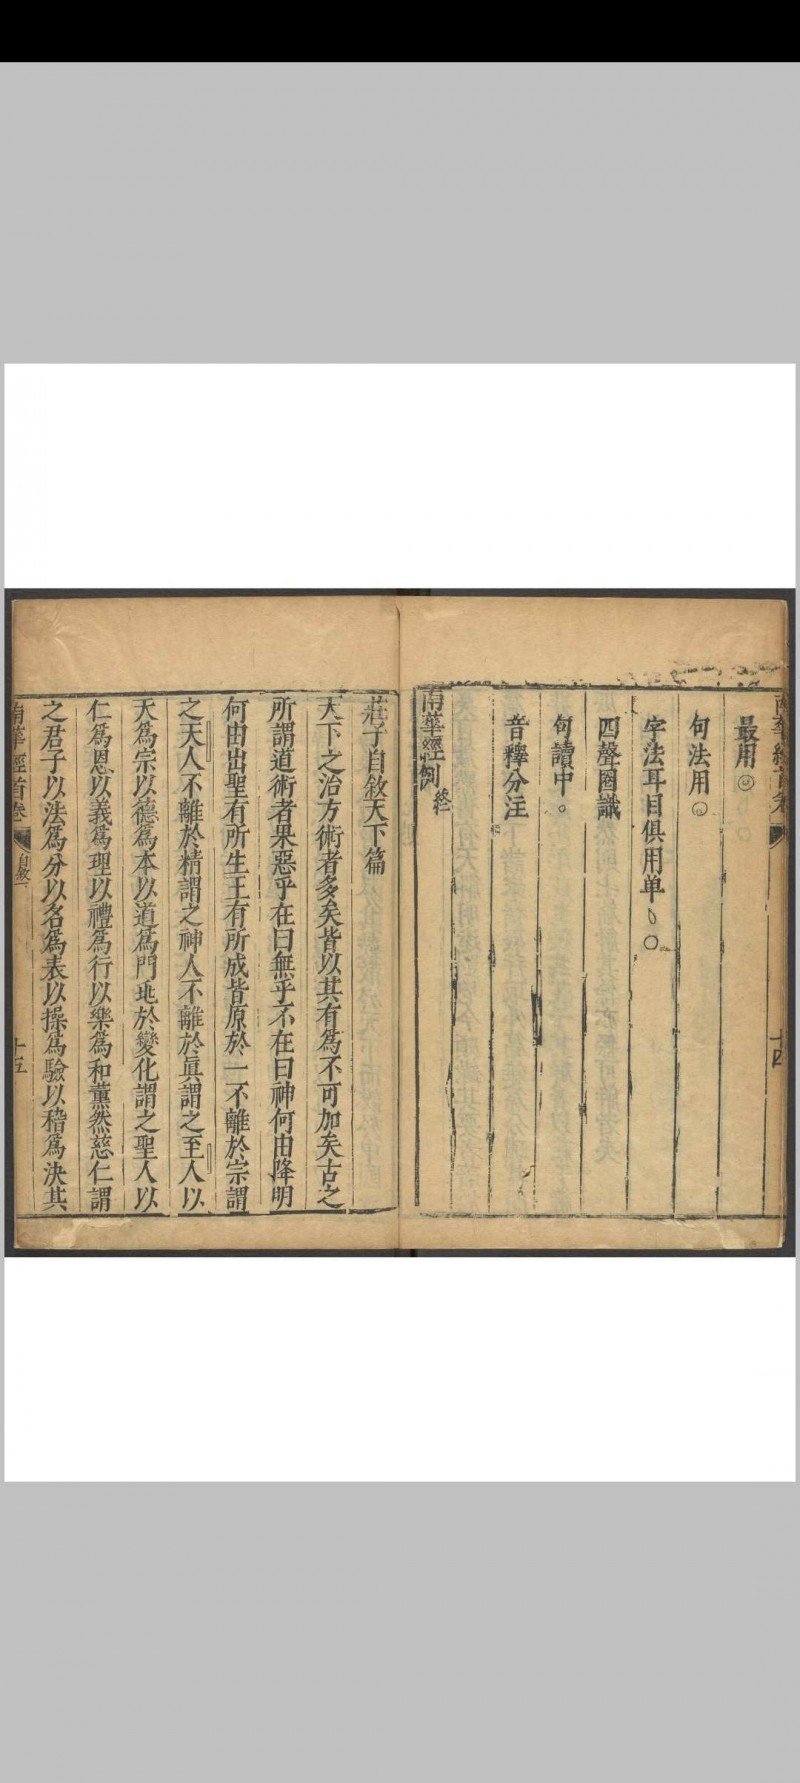 最用◎
句法用
字法耳目俱用单丶○
四聲圈識
句讀中。
音釋分注
南華經例終
南華經首卷
十四
莊子自敘天下篇
天下之治方術者多矣皆以其有為不可加矣古之
所謂道術者果惡乎在曰無乎不在曰神何由降明
何由出聖有所生王有所成皆原於一不離於宗謂
之天人不離於精謂之神人不離於眞謂之至人以
天爲宗以德爲本以道爲門兆於變化謂之聖人以
仁爲恩以義爲理以禮爲行以樂爲和薰然慈仁謂
之君子以法爲分以名爲表以操爲驗以稽爲決其
南華經首卷
自敘一
十五